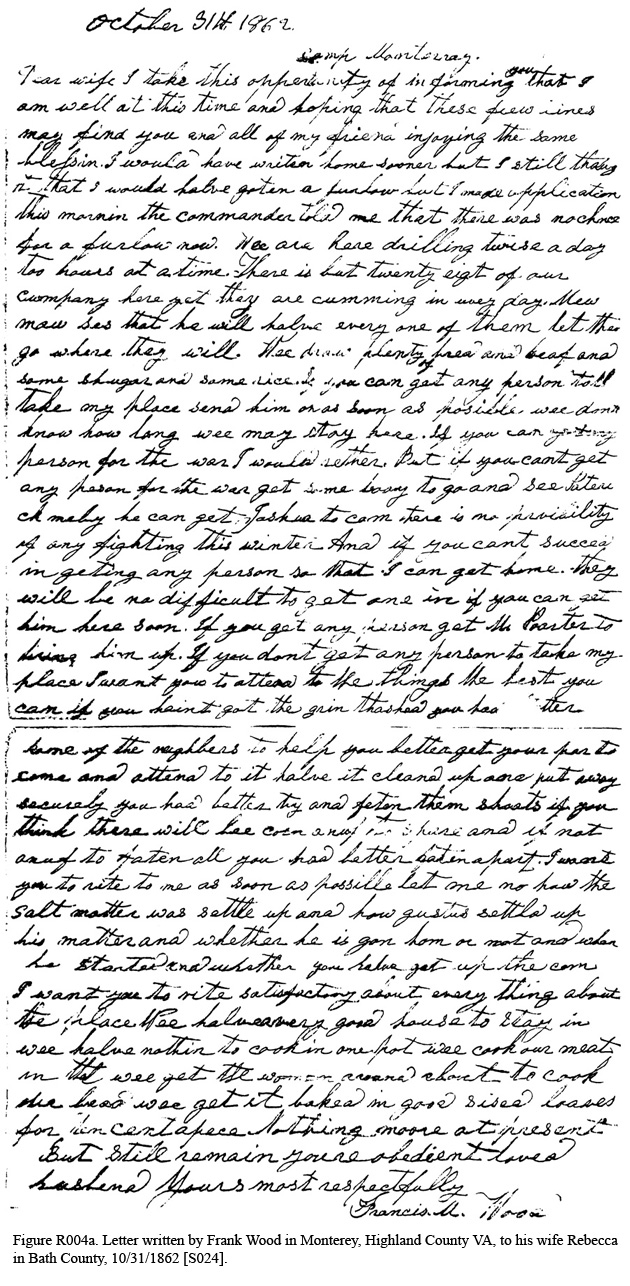 October 31st 1862
Camp Monterray.
Dear wife I take this oppertunity of informing you that I
am well at this time and hoping that these few lines
may find you and all of my friend injoying the same
blessin. I would have writen home sooner but I still thaug
that I would halve goten a furlow but I made application
this mornin the commander told me that there was no chnce
for a furlow now. Wee are here drilling twise a day
too hours at a time. There is but twenty eigt of our
cumpany here yet they are cumming in evey day. Mew
maw ses that he will halve every one of them let them
go where they will. Wee draw plenty of bread and beaf and
some shugar and some rice. If you can get any person to
take my place send him on as soon as posible wee dont
know how long wee may stay here. If you can get any
person for the war I would rether. But if you cant get
any peson for the war get some boddy to go and see
maby he can get Joshua to com there is no
of any fighting this winter. And if you cant succed
in geting any person so that I can get home. they
will be no difficult to get one in if you can get
him here soon. If you get any person get Mr Poarter to
bring him up. If you dont get any person to take my
place I want you to attend to the things the best you
can if you haint got the grin thashed you had better
some of the neighbers to help you better get your par to
come and attend to it halve it cleand up and put away
securely you had better try and faten them shoats if you
think there will bee corn anuf to spare and if not
anuf to faten all you had better faten apart. I want
you to rite to me as soon as possille let me no how the
salt matter was settle up and how gustus settld up
his matter and whether he is gon hom or not and when
he started and whether you halve got up the corn
I want you to rite satisfactory about every thing about
the place Wee halve a very good house to stay in
wee halve nothin to cook in one pot wee cook our meat
in tht wee get the women around about to cook
our bread wee get it baked in good sised loaves
for ten cent apece Nothing moore at present
But still remain youre obedient loved
husbend Yours most respectfully
Francis M. Wood
Figure R004a. Letter written by Frank Wood in Monterey, Highland County VA, to his wife Rebecca
in Bath County, 10/31/1862 [S024].